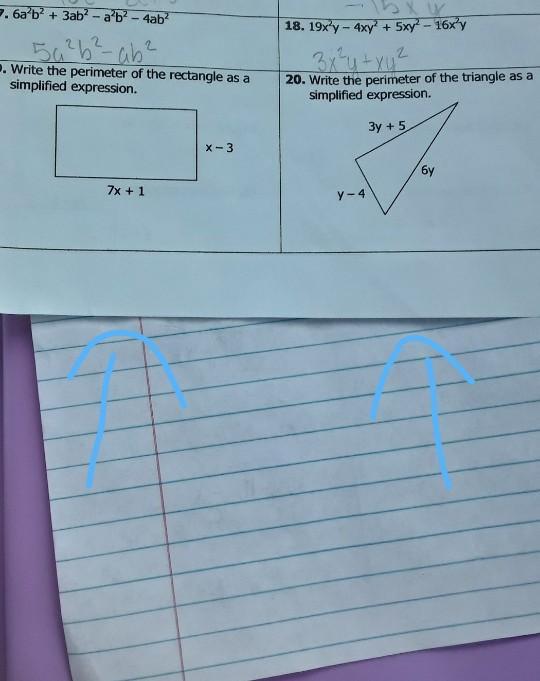 7. 6a²b² + 3ab² − a²b² − 4ab²
5a²b² − ab²
18. 19x²y − 4xy² + 5xy² − 16x²y
3x²y + xy²
. Write the perimeter of the rectangle as a
simplified expression.
x − 3
7x + 1
20. Write the perimeter of the triangle as a
simplified expression.
3y + 5
6y
y − 4